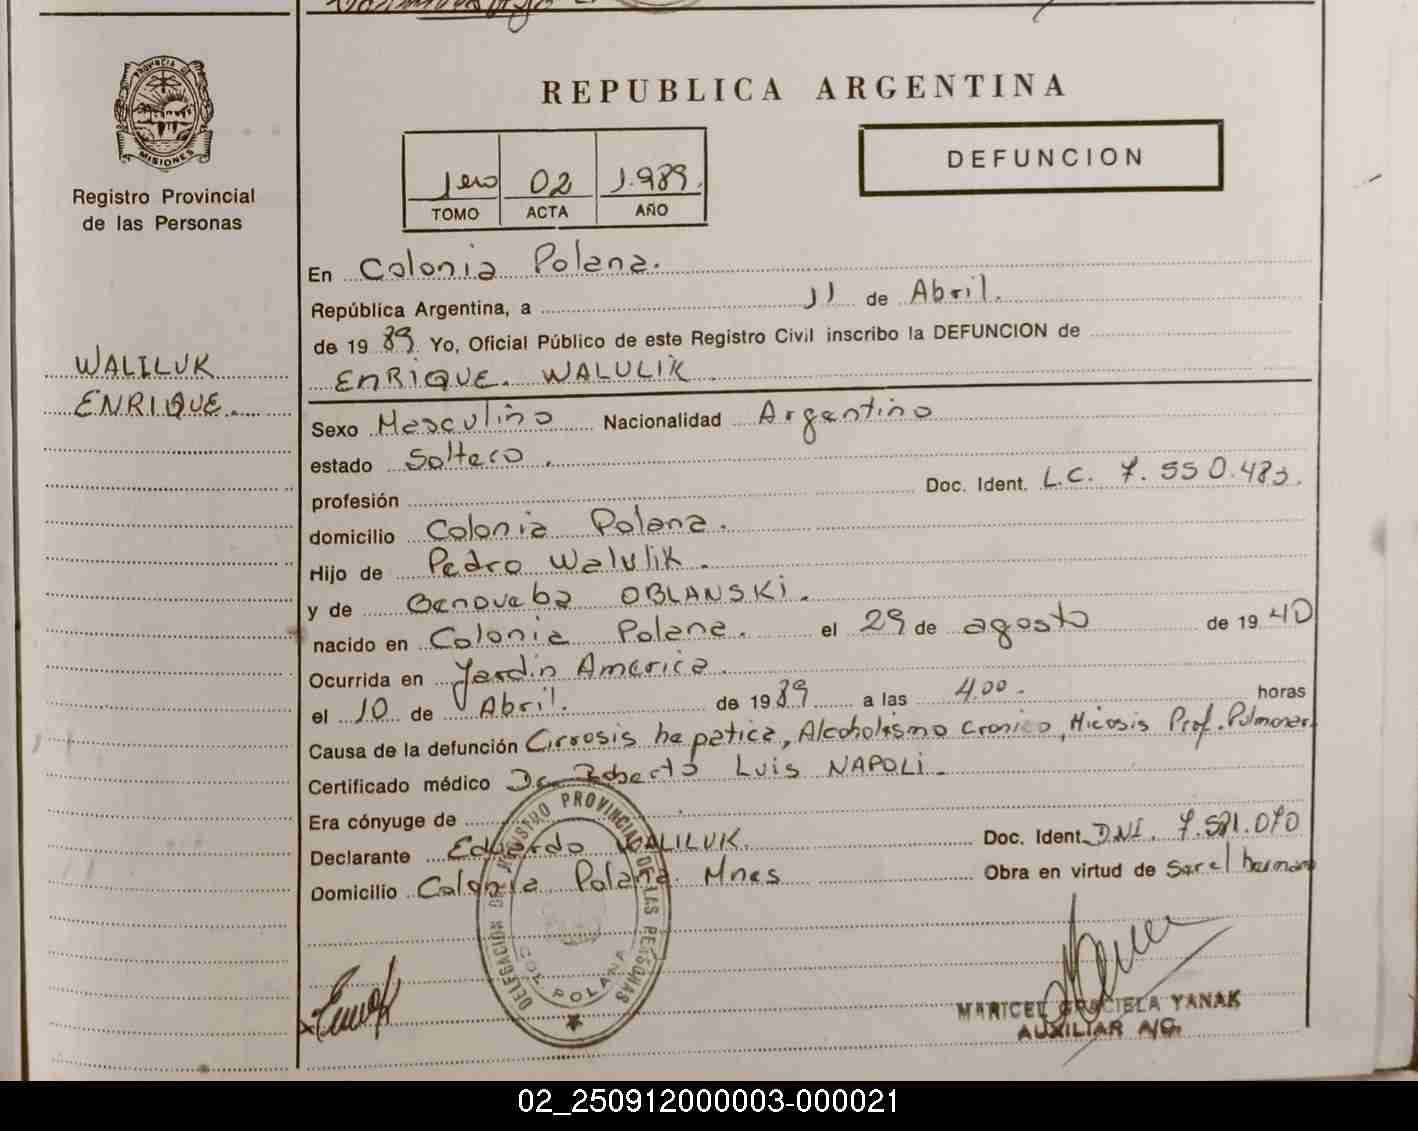 PROVINCIA DE
MISIONES
Registro Provincial
de las Personas
WALILUK
ENRIQUE.
REPUBLICA ARGENTINA
1ero 02 1.989.
TOMO ACTA AÑO
DEFUNCION
En Colonia Polana.
República Argentina, a 11 de Abril.
de 19 89. Yo, Oficial Público de este Registro Civil inscribo la DEFUNCION de
ENRIQUE. WALULIK.
Sexo Masculino Nacionalidad Argentino
estado Soltero.
profesión Doc. Ident. L.C. 7.550.483.
domicilio Colonia Polana.
Hijo de Pedro Walulik.
y de Genoveba OBLANSKI.
nacido en Colonia Polana. el 29 de agosto de 19 40
Ocurrida en Jardin America.
el 10 de Abril. de 19 89 a las 4.00. horas
Causa de la defunción Cirrosis hepatica, Alcoholismo Cronico, Micosis Prof. Pulmonar.
Certificado médico Dr. Roberto Luis NAPOLI.
Era cónyuge de
Declarante Eduardo WALILUK. Doc. Ident. DNI. 7.521.070
Domicilio Colonia Polana. Mnes Obra en virtud de Ser el hermano
DELEGACION DEL REGISTRO PROVINCIAL DE LAS PERSONAS
COL. POLANA
MARICEL GRACIELA YANAK
AUXILIAR A/C.
02_250912000003-000021